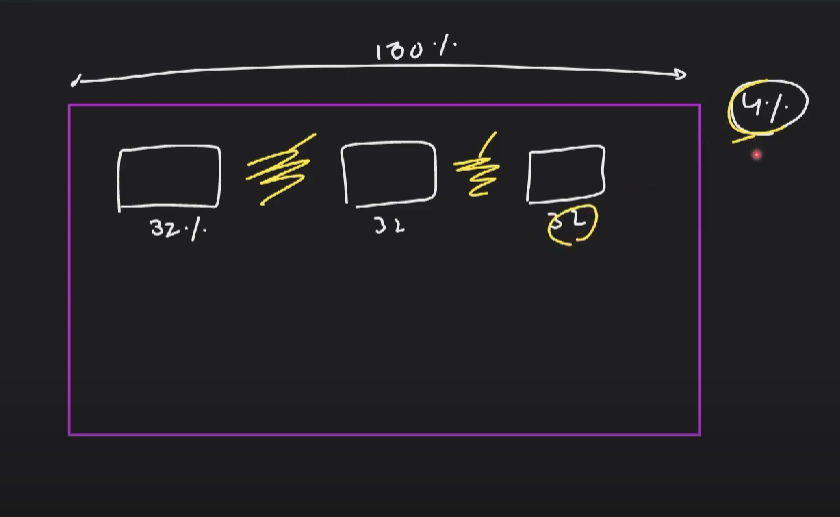 100%
4%
32%
32
32